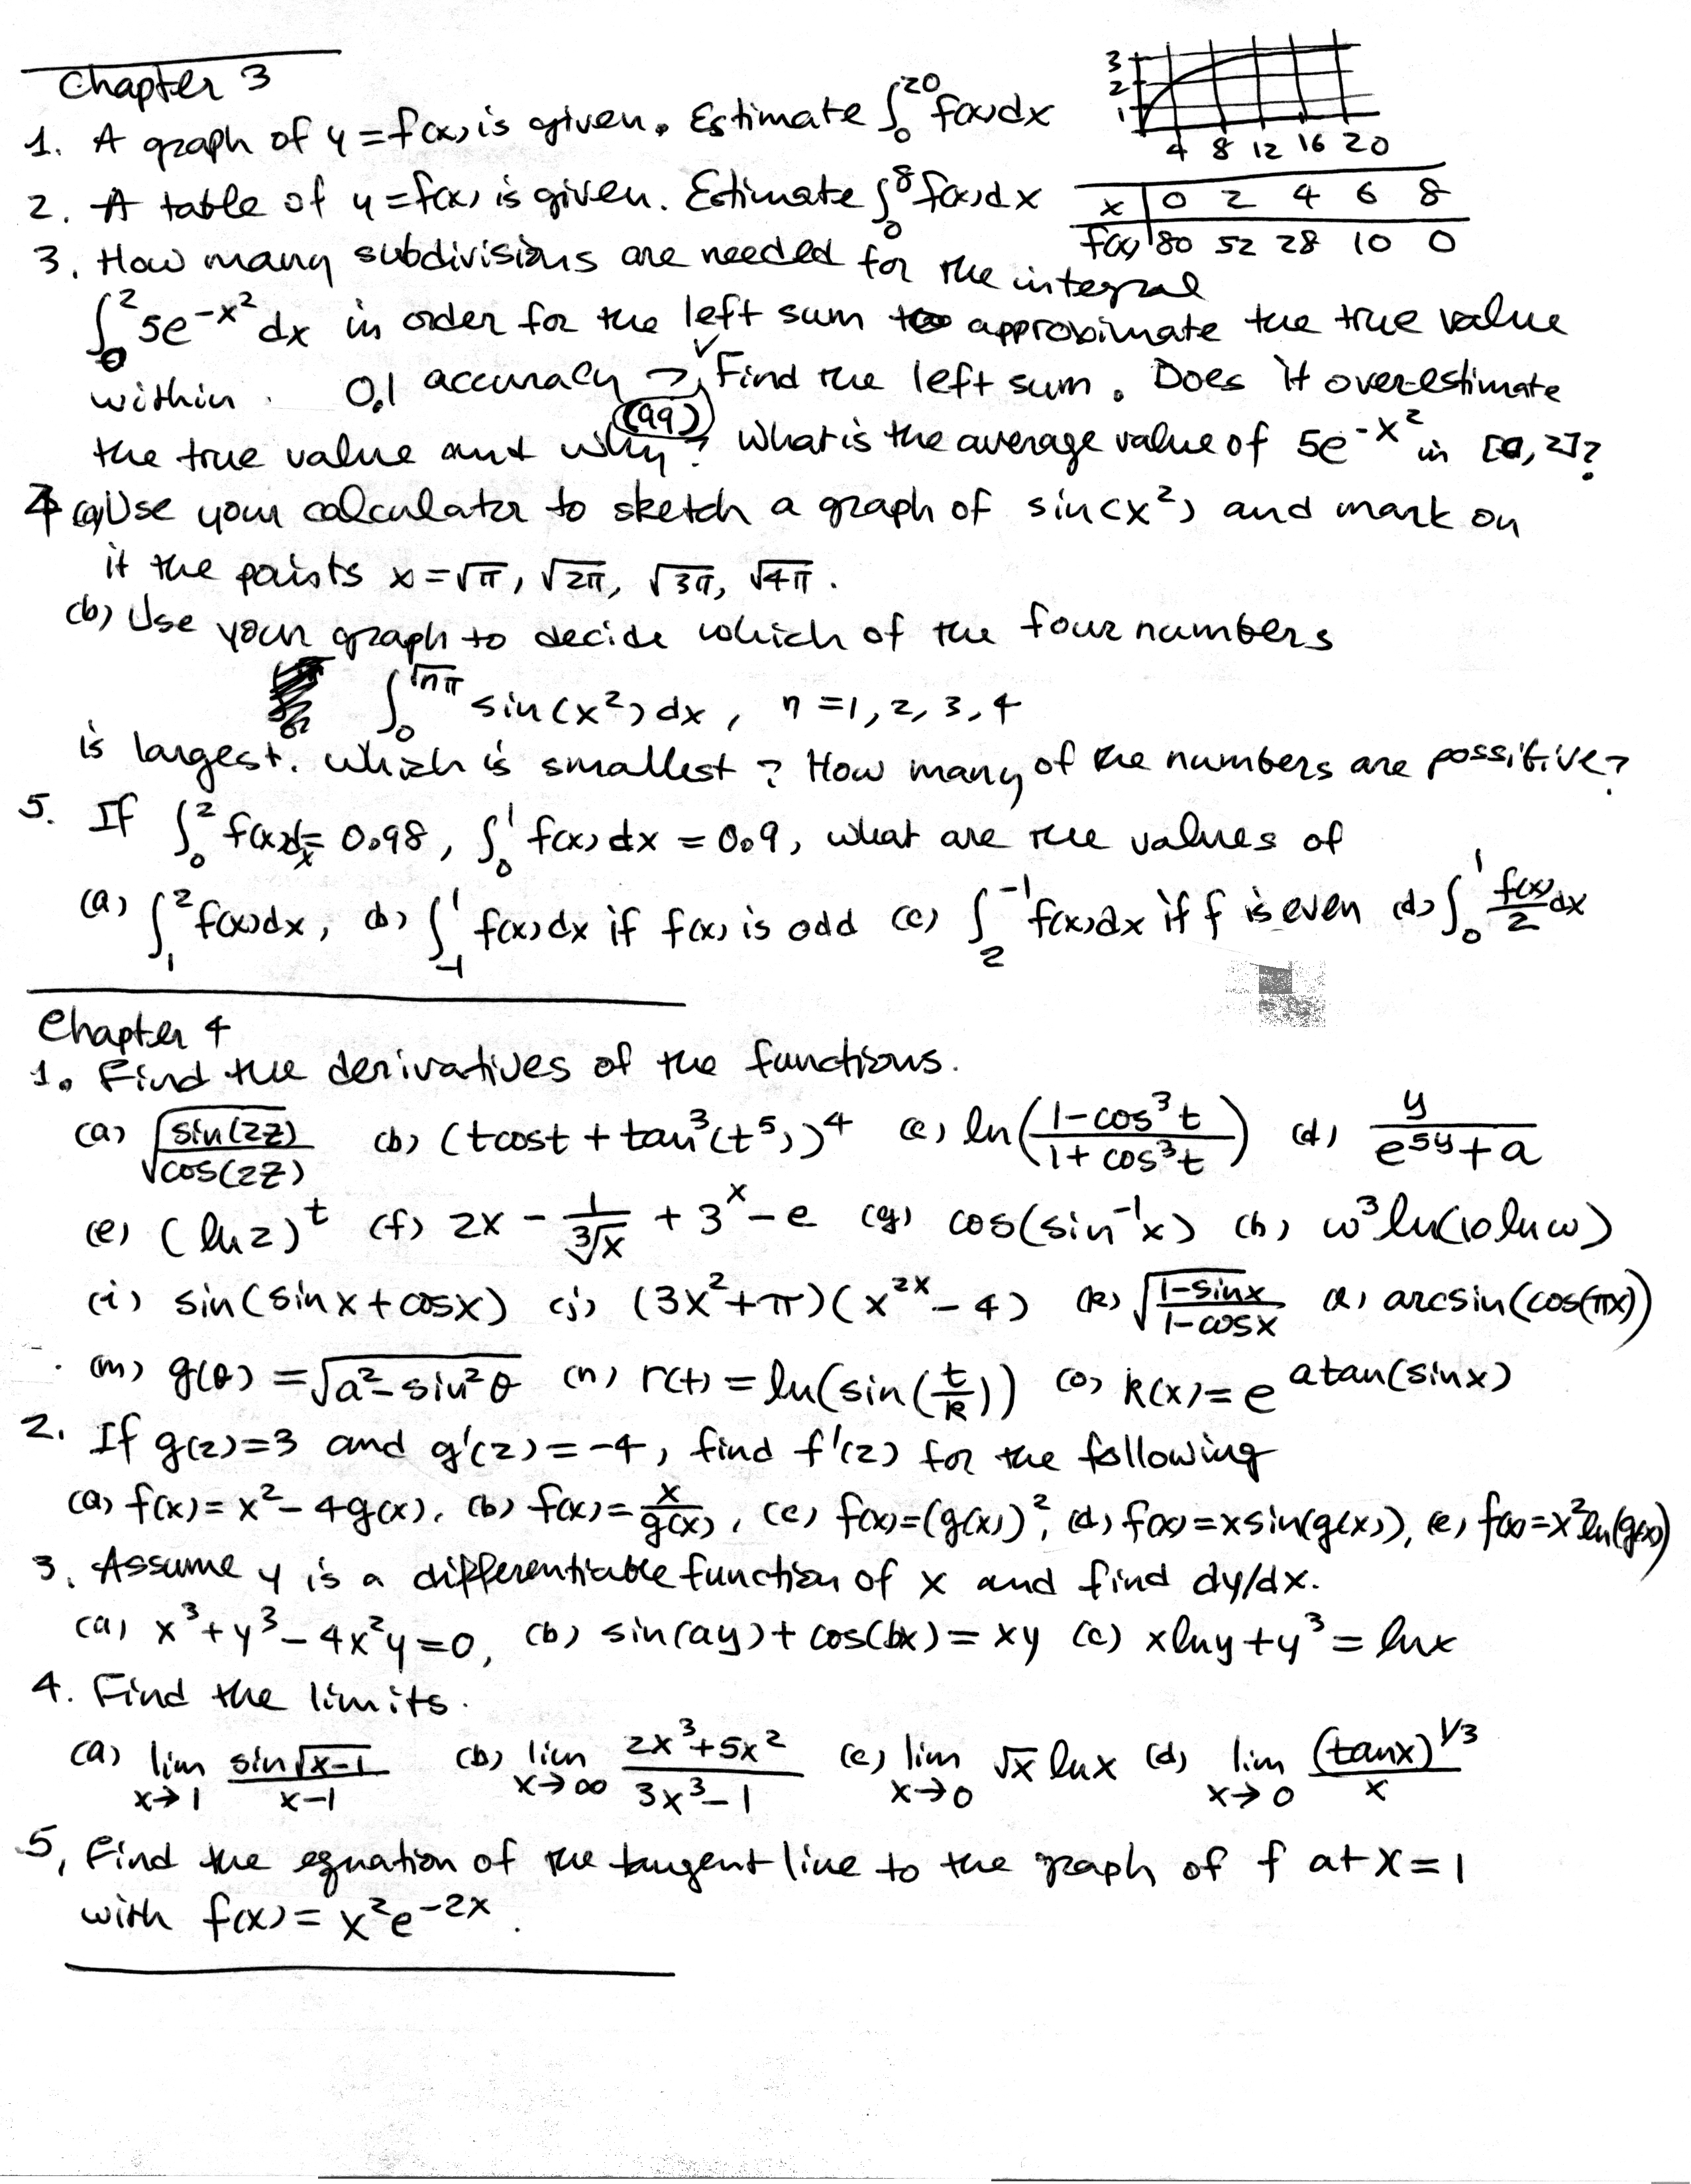 Chapter 3
1. A graph of y=f(x) is given. Estimate ∫₀²⁰ f(x)dx
3
2
1
4 8 12 16 20
2. A table of y=f(x) is given. Estimate ∫₀⁸ f(x)dx
x 0 2 4 6 8
f(x) 80 52 28 10 0
3. How many subdivisions are needed for the integral
∫₀² 5e^{-x²} dx in order for the left sum to approximate the true value
within 0.1 accuracy ? Find the left sum. Does it overestimate
(99)
the true value and why? What is the average value of 5e^{-x²} in [0,2]?
4 (a) Use your calculator to sketch a graph of sin(x²) and mark on
it the points x=√π, √2π, √3π, √4π.
(b) Use your graph to decide which of the four numbers
∫₀^{√nπ} sin(x²)dx, n=1,2,3,4
is largest. Which is smallest? How many of the numbers are possitive?
5. If ∫₀² f(x)dx=0.98, ∫₀¹ f(x)dx=0.9, what are the values of
(a) ∫₁² f(x)dx, (b) ∫₋₁¹ f(x)dx if f(x) is odd (c) ∫₂⁻¹ f(x)dx if f is even (d) ∫₀¹ f(x)/2 dx
Chapter 4
1. Find the derivatives of the functions.
(a) √(sin(2z)/cos(2z)) (b) (tcost+tan³(t⁵))⁴ (c) ln((1-cos³t)/(1+cos³t)) (d) y/(e^{5y}+a)
(e) (ln2)^t (f) 2x - 1/∛x + 3^x - e (g) cos(sin⁻¹x) (h) w³ln(10lnw)
(i) sin(sinx+cosx) (j) (3x²+π)(x^{2x}-4) (k) √((1-sinx)/(1-cosx)) (l) arcsin(cos(πx))
(m) g(θ)=√(a²-sin²θ) (n) r(t)=ln(sin(t/k)) (o) k(x)=e^{atan(sinx)}
2. If g(2)=3 and g'(2)=-4, find f'(2) for the following
(a) f(x)=x²-4g(x), (b) f(x)=x/g(x), (c) f(x)=(g(x))², (d) f(x)=xsin(g(x)), (e) f(x)=x²ln(g(x))
3. Assume y is a differentiable function of x and find dy/dx.
(a) x³+y³-4x²y=0, (b) sin(ay)+cos(bx)=xy (c) xlny+y³=lnx
4. Find the limits.
(a) lim x→1 sin√(x-1)/(x-1) (b) lim x→∞ (2x³+5x²)/(3x³-1) (c) lim x→0 √x lnx (d) lim x→0 (tanx)^{1/3}/x
5, Find the equation of the tangent line to the graph of f at x=1
with f(x)=x²e^{-2x}.